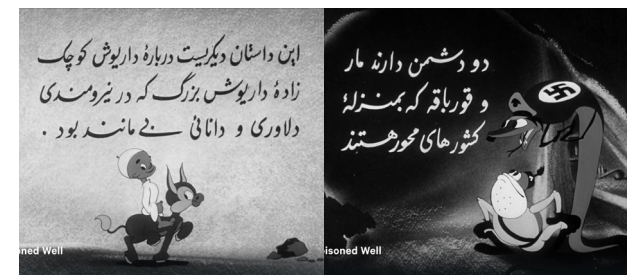 این داستان دیگریست دربارهٔ داریوش کوچک
زادهٔ داریوش بزرگ که در نیرومندی
دلاوری و دانائی بی مانند بود .
oned Well
دو دشمن دارند مار
و قورباقه که بمنزلهٔ
کشورهای محور هستند
isoned Well